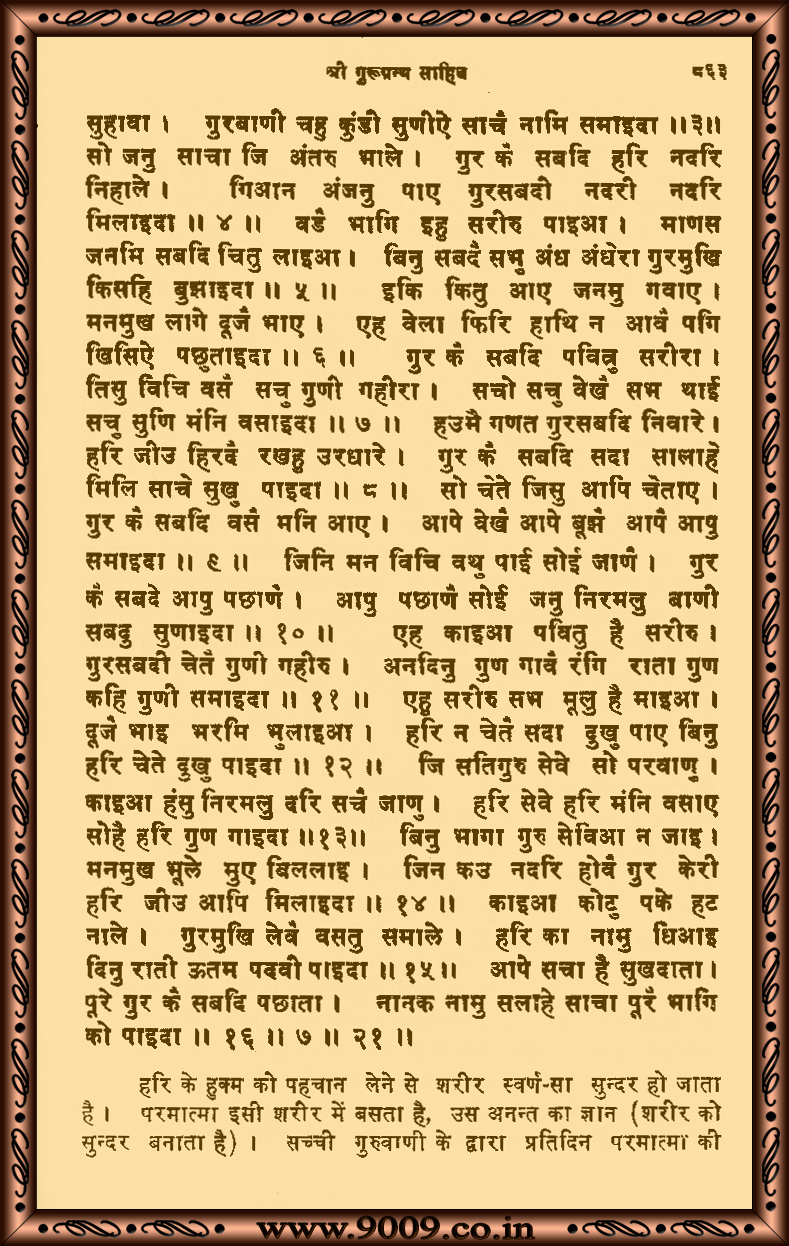 श्री गुरूग्रन्थ साहिब ८६३
सुहावा । गुरबाणी चहु कुंडी सुणीऐ साचै नामि समाइदा ॥३॥
सो जनु साचा जि अंतरु भाले । गुर कै सबदि हरि नदरि
निहाले । गिआन अंजनु पाए गुरसबदी नदरी नदरि
मिलाइदा ॥ ४ ॥ वडै भागि इहु सरीरु पाइआ । माणस
जनमि सबदि चितु लाइआ । बिनु सबदै सभु अंध अंधेरा गुरमुखि
किसहि बुझाइदा ॥ ५ ॥ इकि कितु आए जनमु गवाए ।
मनमुख लागे दूजै भाए । एह वेला फिरि हाथि न आवै पगि
खिसिऐ पछुताइदा ॥ ६ ॥ गुर कै सबदि पवित्रु सरीरा ।
तिसु विचि वसै सचु गुणी गहीरा । सचो सचु वेखै सभ थाई
सचु सुणि मंनि वसाइदा ॥ ७ ॥ हउमै गणत गुरसबदि निवारे ।
हरि जीउ हिरदै रखहु उरधारे । गुर कै सबदि सदा सालाहे
मिलि साचे सुखु पाइदा ॥ ८ ॥ सो चेते जिसु आपि चेताए ।
गुर कै सबदि वसै मनि आए । आपे वेखै आपे बूझै आपै आपु
समाइदा ॥ ९ ॥ जिनि मन विचि वथु पाई सोई जाणै । गुर
कै सबदे आपु पछाणै । आपु पछाणै सोई जनु निरमलु बाणी
सबदु सुणाइदा ॥ १० ॥ एह काइआ पवितु है सरीरु ।
गुरसबदी चेतै गुणी गहीरु । अनदिनु गुण गावै रंगि राता गुण
कहि गुणी समाइदा ॥ ११ ॥ एहु सरीरु सभ मूलु है माइआ ।
दूजै भाइ भरमि भुलाइआ । हरि न चेतै सदा दुखु पाए बिनु
हरि चेते दुखु पाइदा ॥ १२ ॥ जि सतिगुरु सेवे सो परवाणु ।
काइआ हंसु निरमलु दरि सचै जाणु । हरि सेवे हरि मंनि वसाए
सोहै हरि गुण गाइदा ॥१३॥ बिनु भागा गुरु सेविआ न जाइ ।
मनमुख भूले मुए बिललाइ । जिन कउ नदरि होवै गुर केरी
हरि जीउ आपि मिलाइदा ॥ १४ ॥ काइआ कोटु पके हट
नाले । गुरमुखि लेवै वसतु समाले । हरि का नामु धिआइ
दिनु राती ऊतम पदवी पाइदा ॥ १५ ॥ आपे सचा है सुखदाता ।
पूरे गुर कै सबदि पछाता । नानक नामु सलाहे साचा पूरै भागि
को पाइदा ॥ १६ ॥ ७ ॥ २१ ॥
हरि के हुक्म को पहचान लेने से शरीर स्वर्ण-सा सुन्दर हो जाता
है । परमात्मा इसी शरीर में बसता है, उस अनन्त का ज्ञान (शरीर को
सुन्दर बनाता है) । सच्ची गुरुवाणी के द्वारा प्रतिदिन परमात्मा की
www.9009.co.in